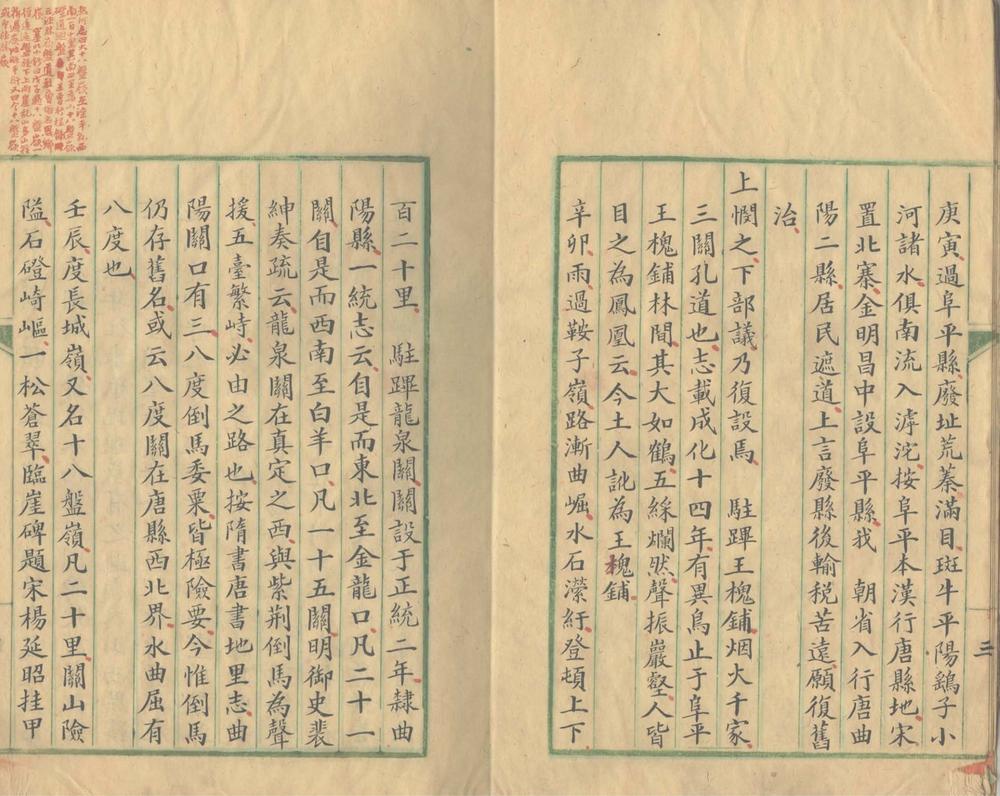 庚寅過阜平縣廢址荒蓁滿目斑牛平陽鷂子小
河諸水俱南流入滹沱按阜平本漢行唐縣地宋
置北寨金明昌中設阜平縣我 朝省入行唐曲
陽二縣居民遮道上言廢縣後輸税苦遠願復舊
治
上憫之下部議乃復設馬 駐蹕王槐鋪烟火千家
三關孔道也志載成化十四年有異鳥止于阜平
王槐鋪林間其大如鶴五綵爛然聲振巖壑人皆
目之為鳳凰云今土人訛為王槐鋪
辛卯雨過鞍子嶺路漸曲崛水石瀠紆登頓上下
三
百二十里 駐蹕龍泉關關設于正統二年隸曲
陽縣一統志云自是而東北至金龍口凡二十一
關自是而西南至白羊口凡一十五關明御史裴
紳奏疏云龍泉關在真定之西與紫荆倒馬為聲
援五臺繁峙必由之路也按隋書唐書地里志曲
陽關口有三八度倒馬委粟皆極險要今惟倒馬
仍存舊名或云八度關在唐縣西北界水曲屈有
八度也
壬辰度長城嶺又名十八盤嶺凡二十里關山險
隘石磴崎嶇一松蒼翠臨崖碑題宋楊延昭挂甲